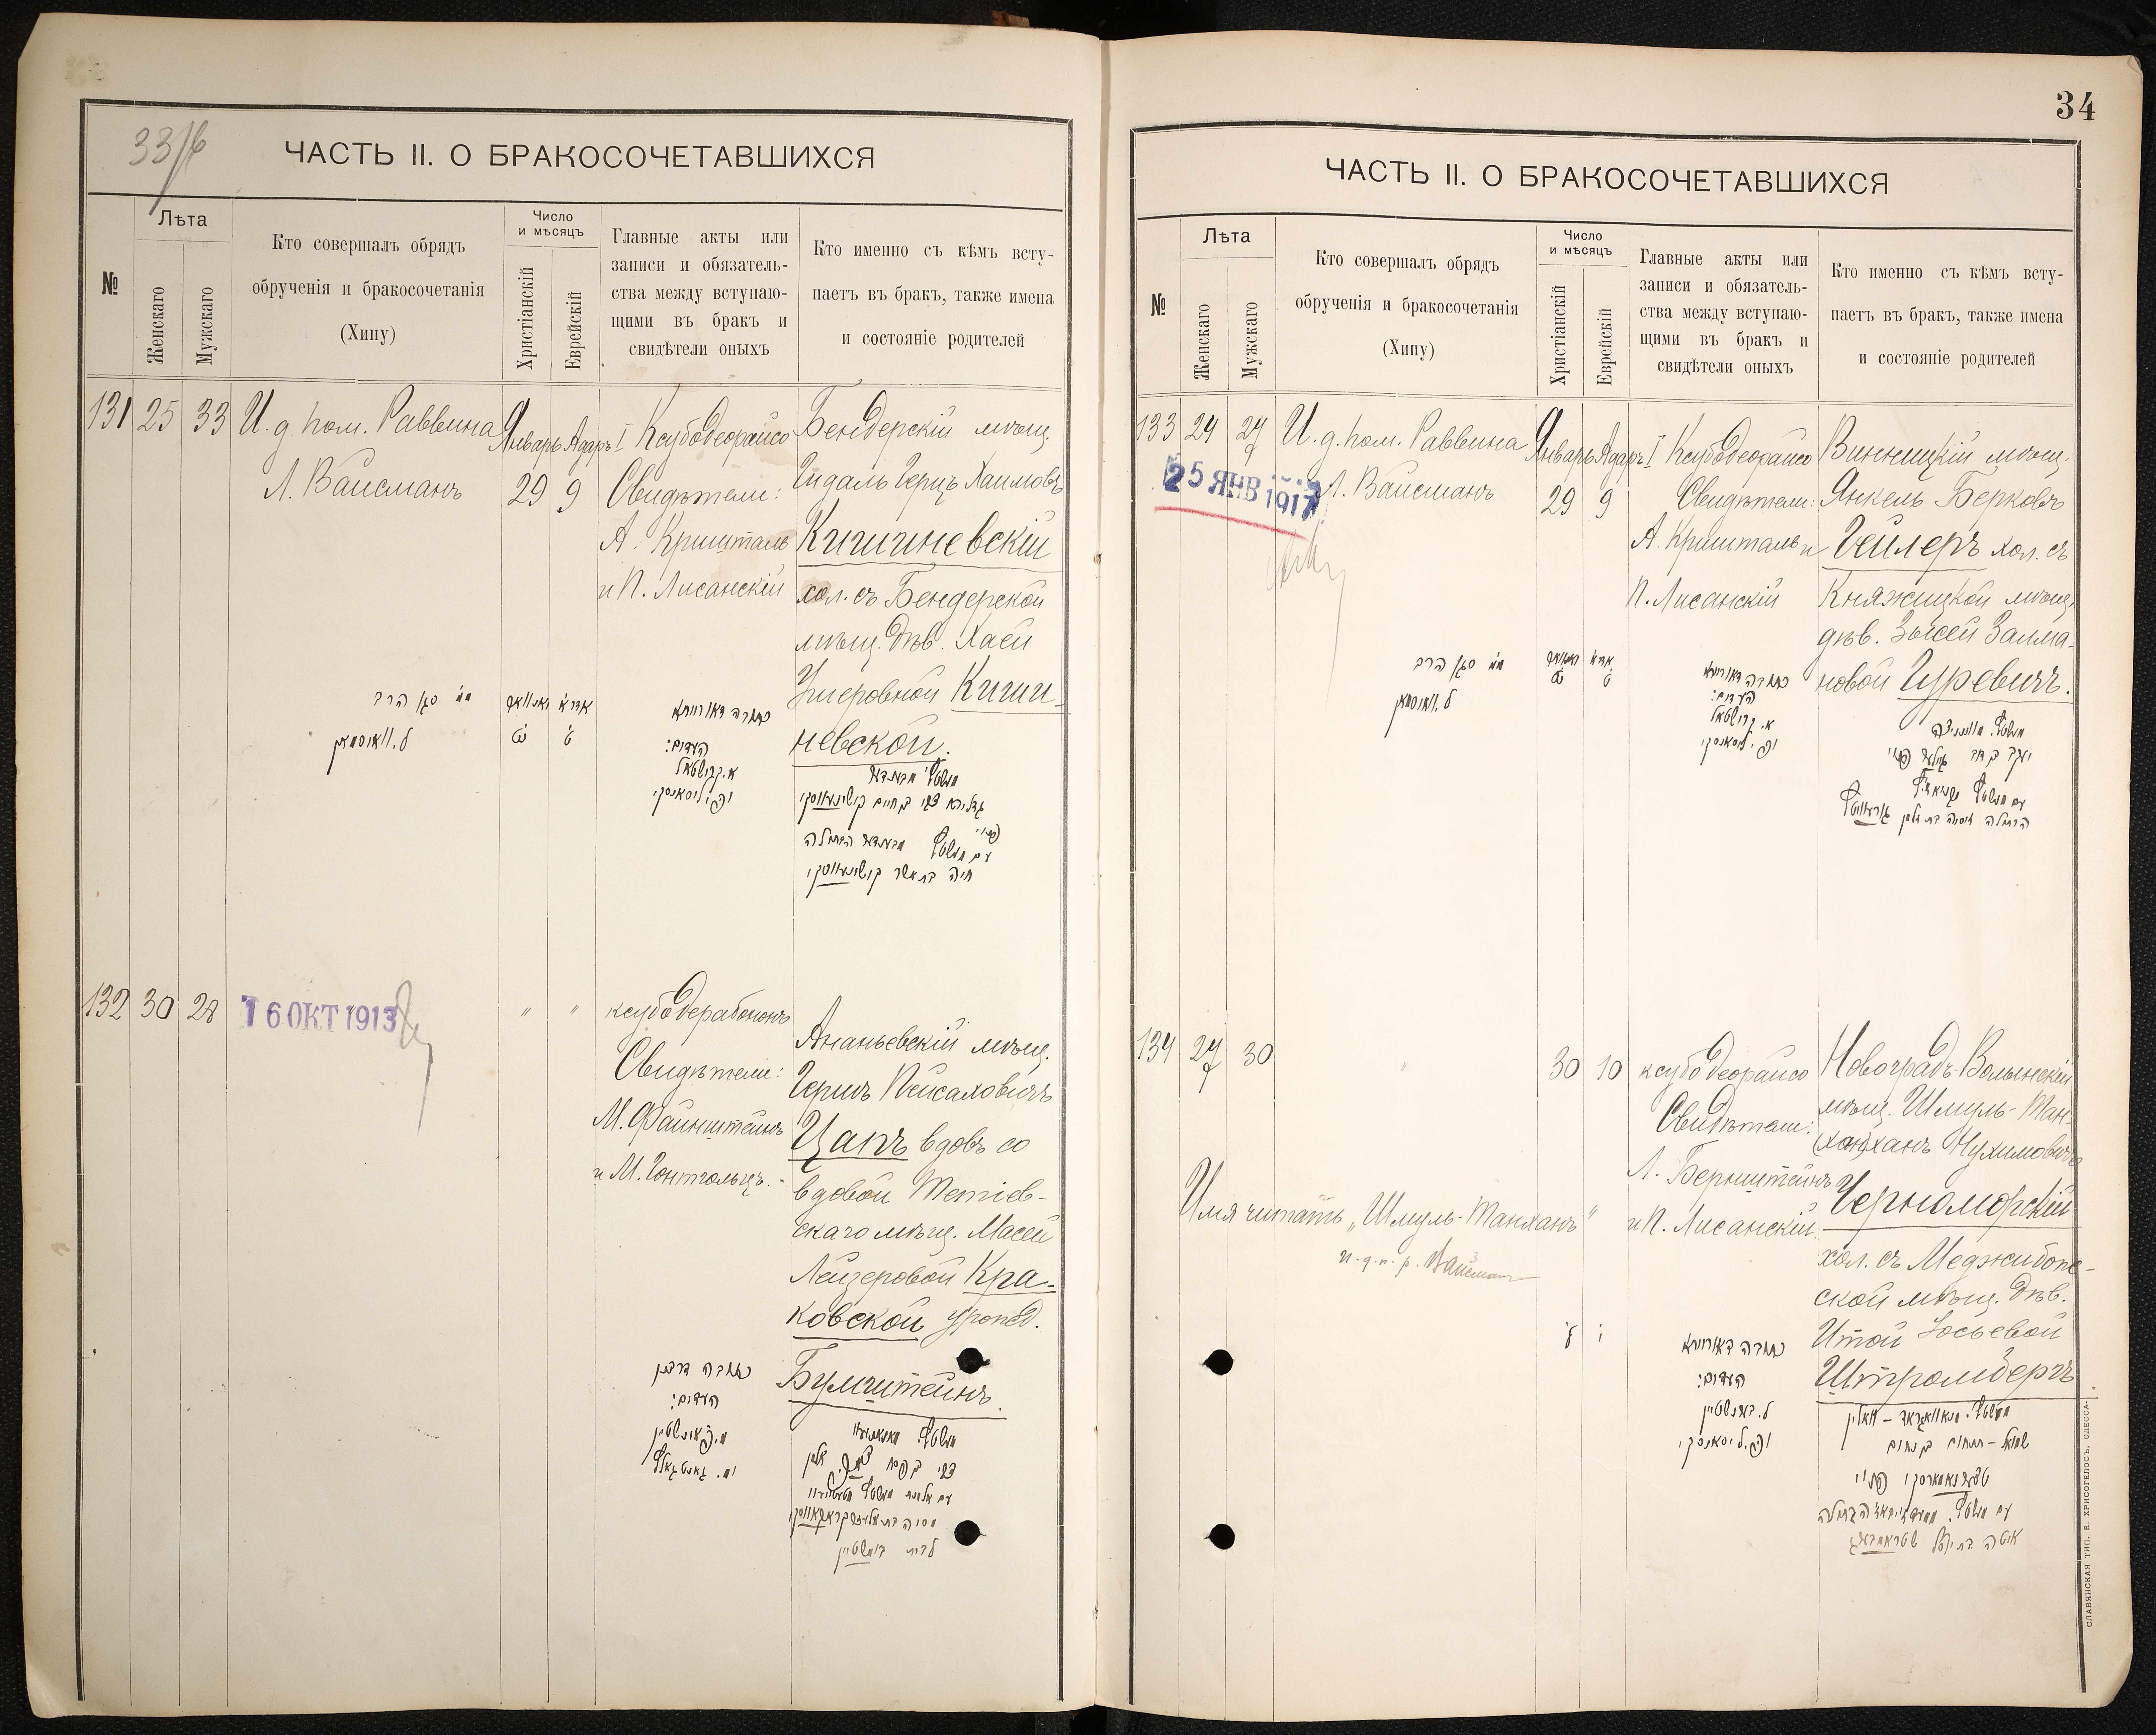 33/б
ЧАСТЬ II. О БРАКОСОЧЕТАВШИХСЯ
№
Лѣта
Женскаго
Мужскаго
Кто совершалъ обрядъ
обрученія и бракосочетанія
(Хипу)
Число
и мѣсяцъ
Христіанскій
Еврейскій
Главные акты или
записи и обязатель-
ства между вступаю-
щими въ бракъ и
свидѣтели оныхъ
Кто именно съ кѣмъ всту-
паетъ въ бракъ, также имена
и состояніе родителей
131 25 33
И. д. пом. Раввина
Л. Вайсманъ
Январь Адаръ I
29 9
Ксубодеорайсо
Свидѣтели:
А. Кришталь
и П. Лисанскій
Бендерскій мѣщ.
Гидаль Герцъ Хаимовъ
Кишиневскій
хол. съ Бендерской
мѣщ. дѣв. Хаей
Ушеровной Киши-
невской.
ל. וואיסמאן
כתובה דאורייתא
העדים:
א. קרישטאל
ופ. ליסאנסקי
132 30 28
16 ОКТ 1913
" "
ксубодерабононъ
Свидѣтели:
М. Файнштейнъ
и М. Гонтгольцъ.
Ананьевскій мѣщ.
Гершъ Пейсаховичъ
Цапъ вдовъ со
вдовой Тетіев-
скаго мѣщ. Масей
Лейзеровой Кра-
ковской урожд.
Бумштейнъ.
כתובה דרבנן
העדים:
34
ЧАСТЬ II. О БРАКОСОЧЕТАВШИХСЯ
№
Лѣта
Женскаго
Мужскаго
Кто совершалъ обрядъ
обрученія и бракосочетанія
(Хипу)
Число
и мѣсяцъ
Христіанскій
Еврейскій
Главные акты или
записи и обязатель-
ства между вступаю-
щими въ бракъ и
свидѣтели оныхъ
Кто именно съ кѣмъ всту-
паетъ въ бракъ, также имена
и состояніе родителей
133 24 27
25 ЯНВ 1917
И. д. пом. Раввина
Л. Вайсманъ
Январь Адаръ I
29 9
Ксубодеорайсо
Свидѣтели:
А. Кришталь и
П. Лисанскій
Винницкій мѣщ.
Янкель Берковъ
Гейлеръ хол. съ
Княжицкой мѣщ.
дѣв. Зысей Залма-
новой Гуревичъ.
ל. וואיסמאן
כתובה דאורייתא
העדים:
א. קרישטאל
ופ. ליסאנסקי
134 27 30
"
30 10
ксубодеорайсо
Свидѣтели:
Л. Бернштейнъ
и П. Лисанскій.
Новоградъ-Волынскій
мѣщ. Шмуль-Тан-
ханъ Нухимовичъ
Черноморскій
хол. съ Меджибож-
ской мѣщ. дѣв.
Итой Іосьевой
Штромбергъ
Имя читать „Шмуль-Танханъ"
и. д. п. р. Вайсман
כתובה דאורייתא
העדים:
ל. בערנשטיין
ופ. ליסאנסקי
СЛАВЯНСКАЯ ТИП. Е. ХРИСОГЕЛОСЪ, ОДЕССА.